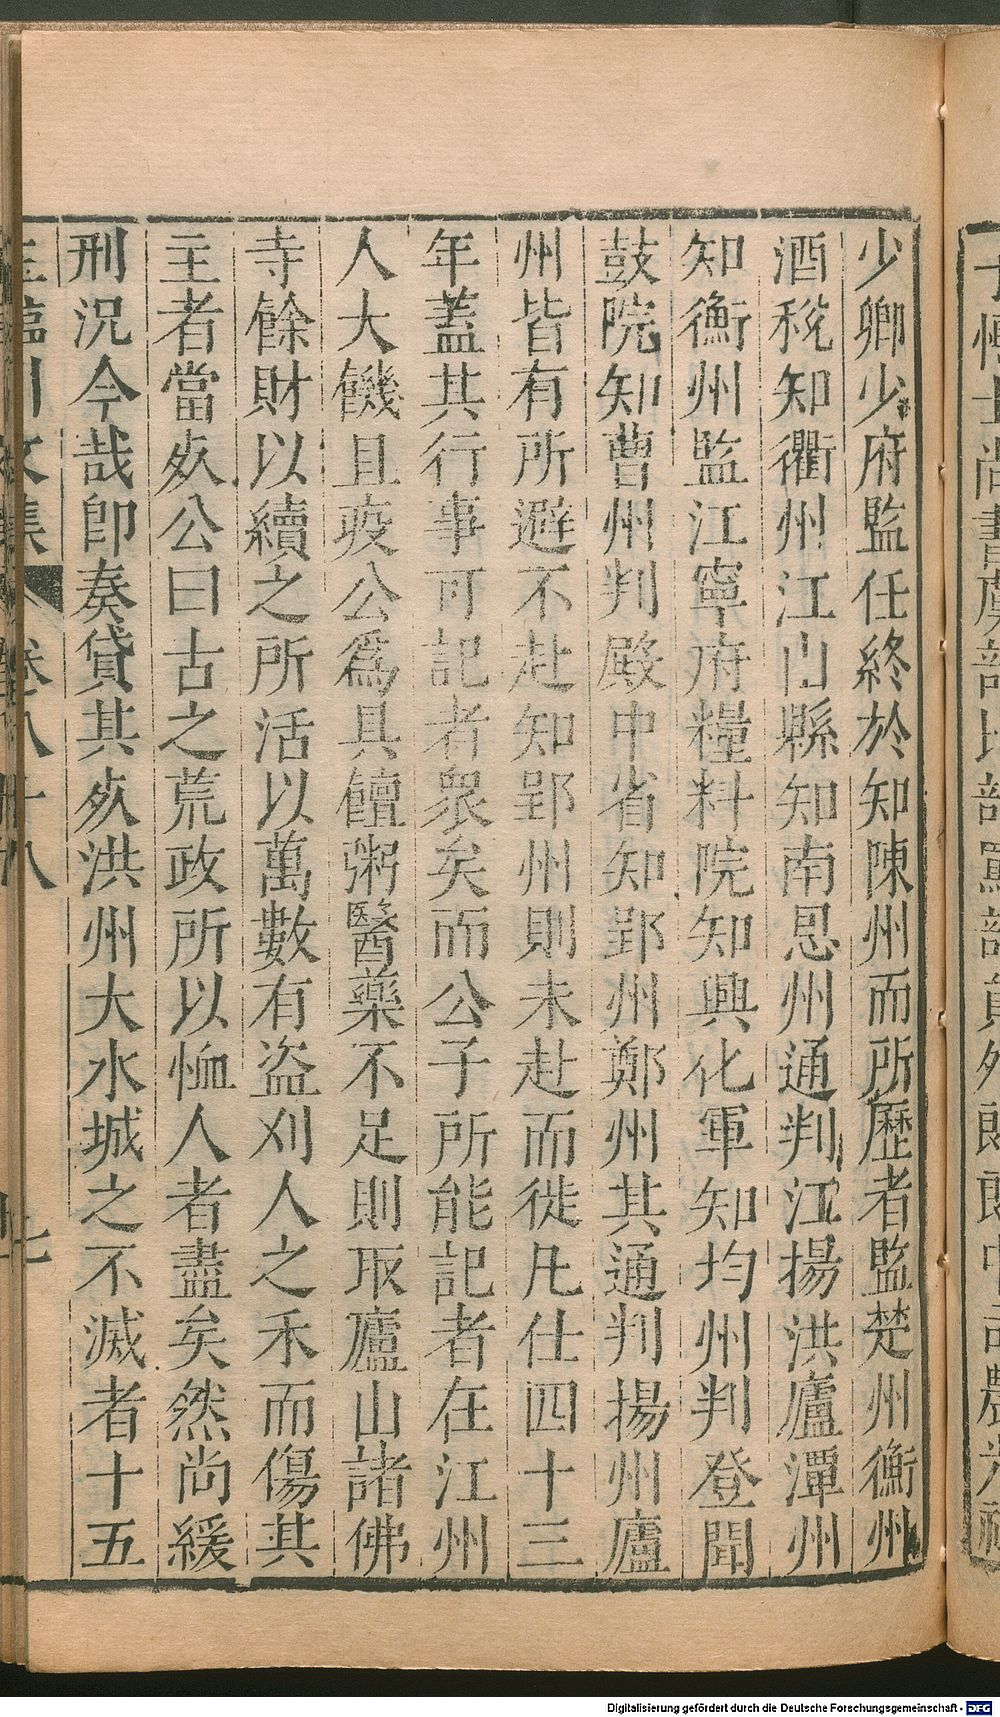 少卿少府監任終於知陳州而所歷者監楚州衡州
酒稅知衢州江山縣知南恩州通判江揚洪廬潭州
知衡州監江寧府糧料院知興化軍知均州判登聞
鼓院知曹州判殿中省知郢州鄭州其通判揚州廬
州皆有所避不赴知郢州則未赴而徙凡仕四十三
年蓋其行事可記者衆矣而公子所能記者在江州
人大饑且疫公爲具饘粥醫藥不足則取廬山諸佛
寺餘財以續之所活以萬數有盜刈人之禾而傷其
主者當死公曰古之荒政所以恤人者盡矣然尚緩
刑況今哉卽奏貸其死洪州大水城之不滅者十五
卷八十八
Digitalisierung gefördert durch die Deutsche Forschungsgemeinschaft - DFG